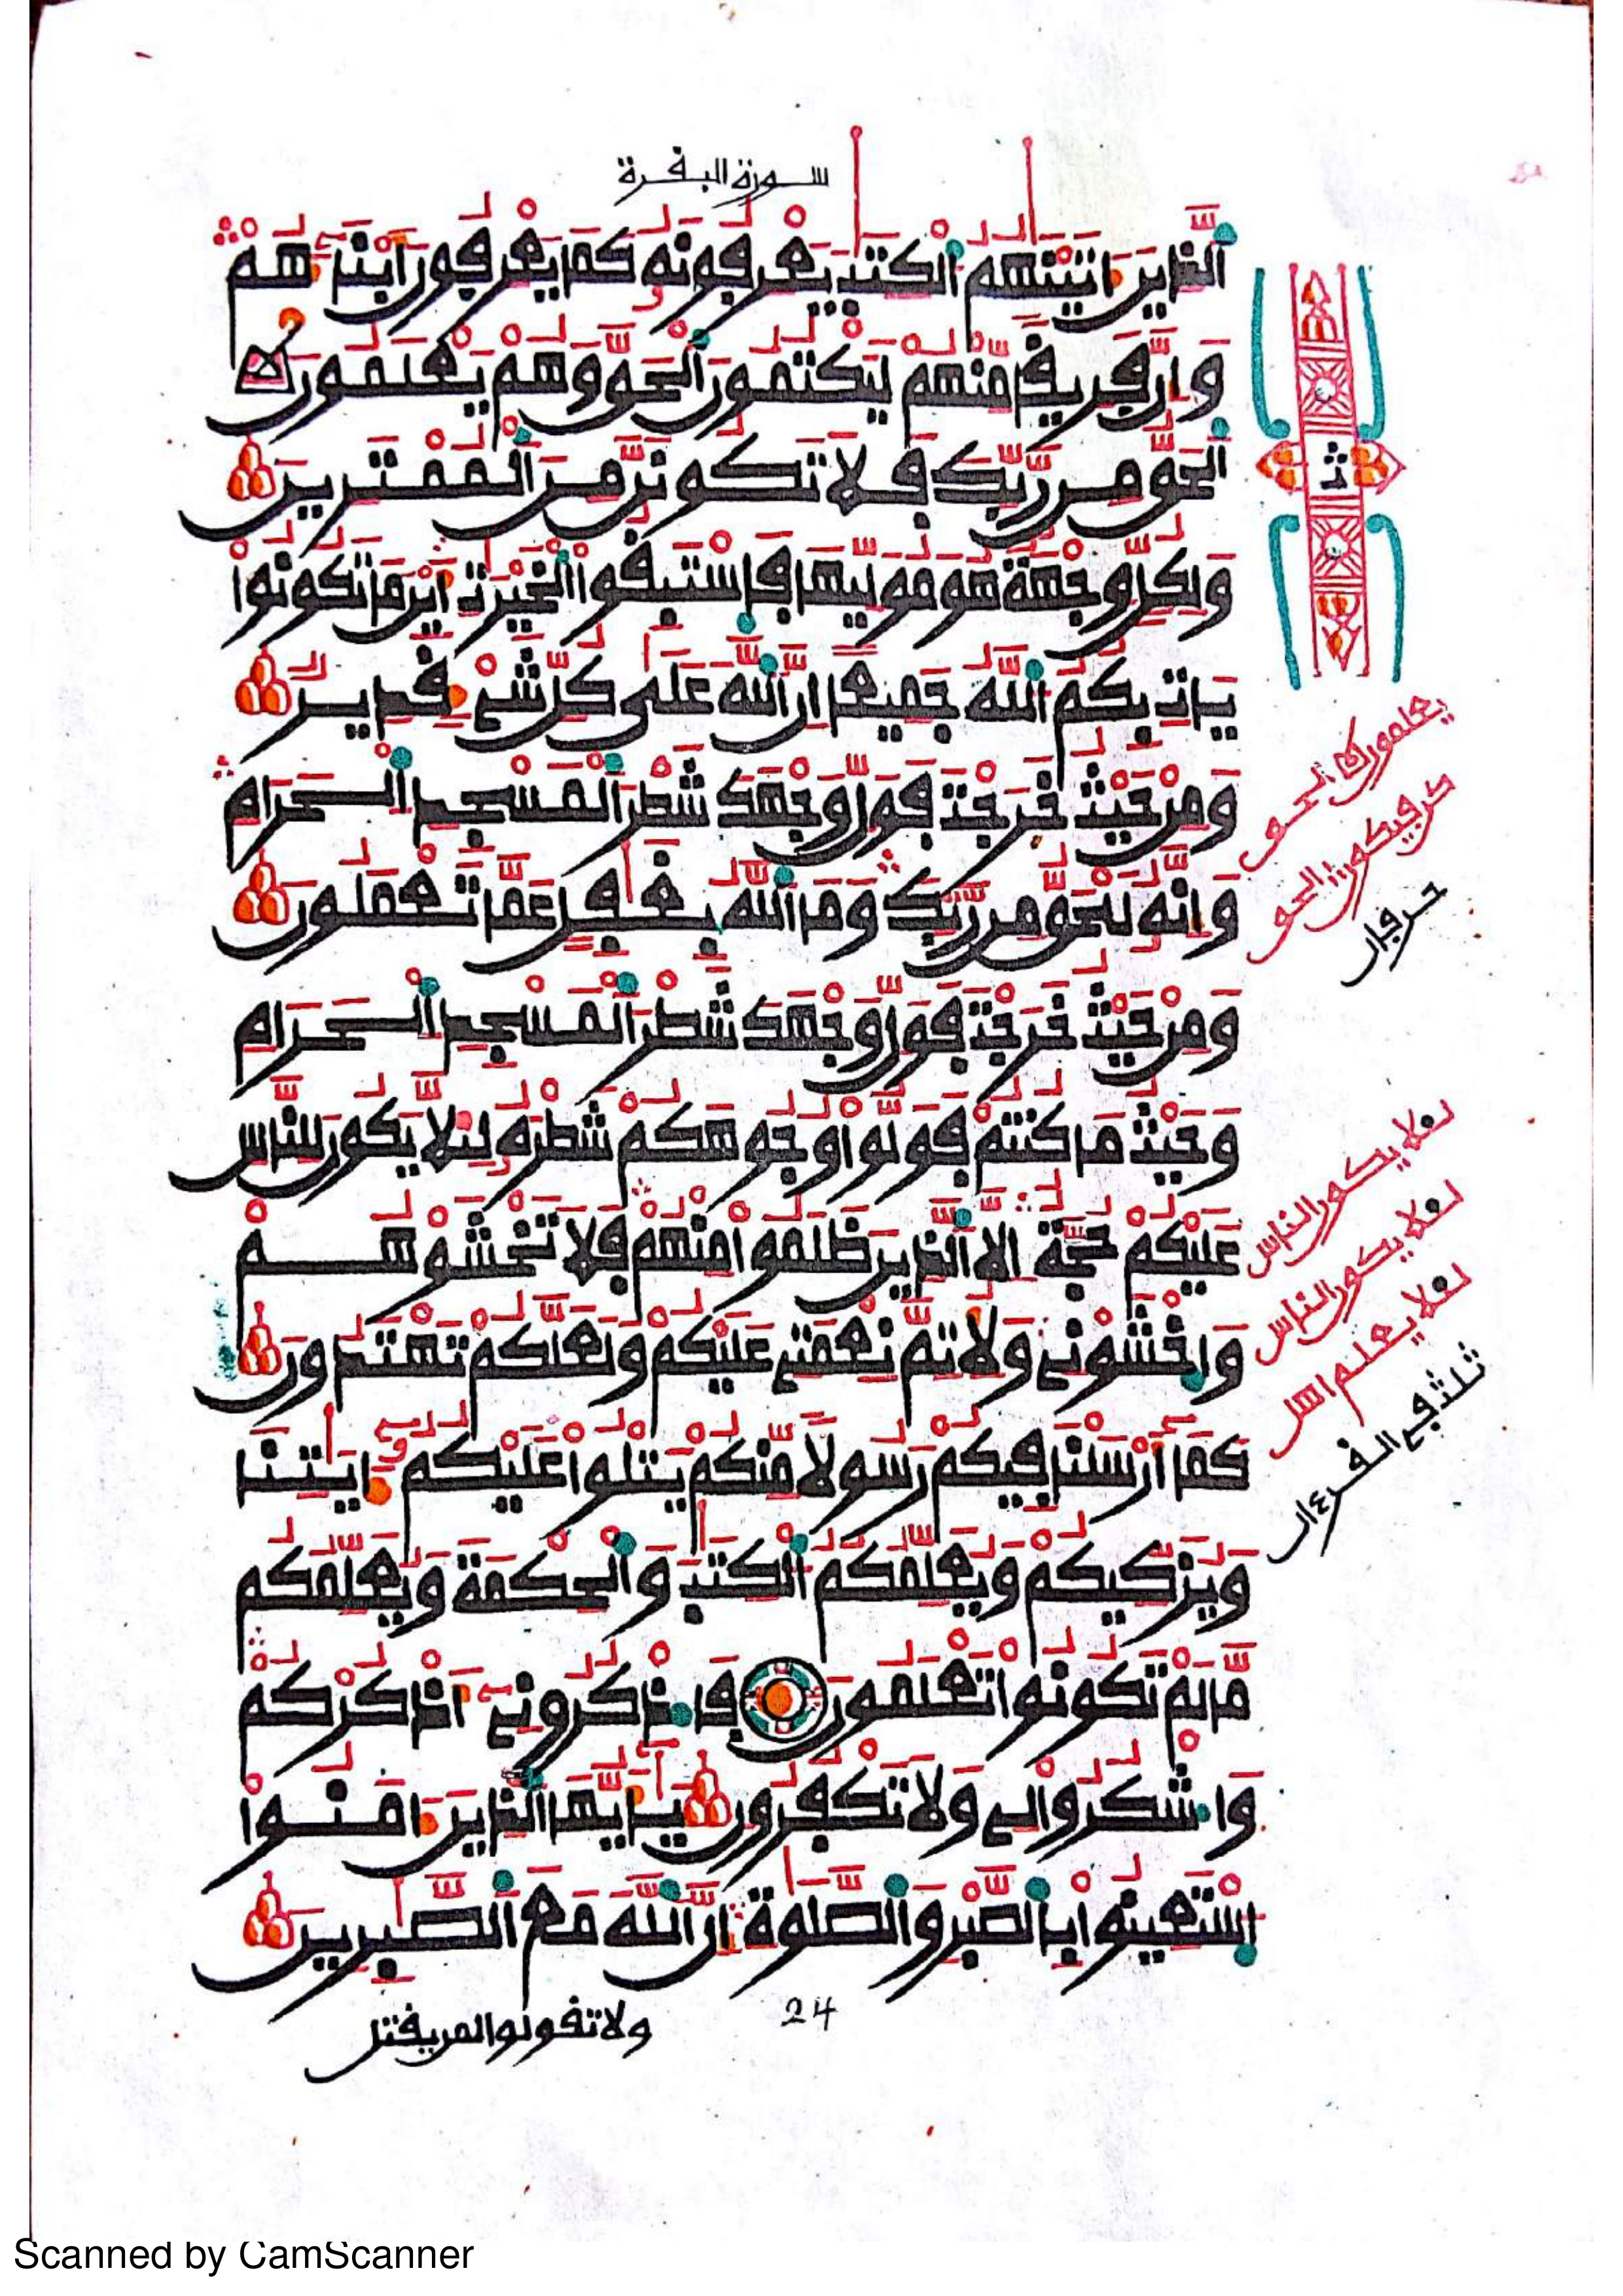 سورة البقرة
اَ۬لذِينَ ءَاتَيْنَٰهُمُ اُ۬لْكِتَٰبَ يَعْرِفُونَهُۥ كَمَا يَعْرِفُونَ أَبْنَآءَهُمْ
وَإِنَّ فَرِيقاٗ مِّنْهُمْ لَيَكْتُمُونَ اَ۬لْحَقَّ وَهُمْ يَعْلَمُونَ
اَ۬لْحَقُّ مِن رَّبِّكَ فَلَا تَكُونَنَّ مِنَ اَ۬لْمُمْتَرِينَ
وَلِكُلّٖ وِجْهَةٌ هُوَ مُوَلِّيهَا فَاسْتَبِقُوا اُ۬لْخَيْرَٰتِ أَيْنَ مَا تَكُونُواْ
يَاتِ بِكُمُ اُ۬للَّهُ جَمِيعاً اِنَّ اَ۬للَّهَ عَلَىٰ كُلِّ شَےْءٖ قَدِيرٞ
وَمِنْ حَيْثُ خَرَجْتَ فَوَلِّ وَجْهَكَ شَطْرَ اَ۬لْمَسْجِدِ اِ۬لْحَرَامِ
وَإِنَّهُۥ لَلْحَقُّ مِن رَّبِّكَ وَمَا اَ۬للَّهُ بِغَٰفِلٍ عَمَّا تَعْمَلُونَ
وَمِنْ حَيْثُ خَرَجْتَ فَوَلِّ وَجْهَكَ شَطْرَ اَ۬لْمَسْجِدِ اِ۬لْحَرَامِ
وَحَيْثُ مَا كُنتُمْ فَوَلُّواْ وُجُوهَكُمْ شَطْرَهُۥ لِيَلَّا يَكُونَ لِلنَّاسِ
عَلَيْكُمْ حُجَّةٌ اِلَّا اَ۬لذِينَ ظَلَمُواْ مِنْهُمْ فَلَا تَخْشَوْهُمْ
وَاخْشَوْنِے وَلِأُتِمَّ نِعْمَتِے عَلَيْكُمْ وَلَعَلَّكُمْ تَهْتَدُونَ
كَمَا أَرْسَلْنَا فِيكُمْ رَسُولاٗ مِّنكُمْ يَتْلُواْ عَلَيْكُمُۥ ءَايَٰتِنَا
وَيُزَكِّيكُمْ وَيُعَلِّمُكُمُ اُ۬لْكِتَٰبَ وَالْحِكْمَةَ وَيُعَلِّمُكُم
مَّا لَمْ تَكُونُواْ تَعْلَمُونَ فَاذْكُرُونِے أَذْكُرْكُمْ
وَاشْكُرُواْ لِے وَلَا تَكْفُرُونِ يَٰأَيُّهَا اَ۬لذِينَ ءَامَنُواْ
اُ۪سْتَعِينُواْ بِالصَّبْرِ وَالصَّلَوٰةِ إِنَّ اَ۬للَّهَ مَعَ اَ۬لصَّٰبِرِينَ
ولا تقولوا لمن يقتل
24
ث
يعلمون الحق
كن فيكون الحق
حرفان
لئلا يكون للناس
لئلا يكون للناس
لئلا يعلم اهل
ثلث في القرءان
Scanned by CamScanner